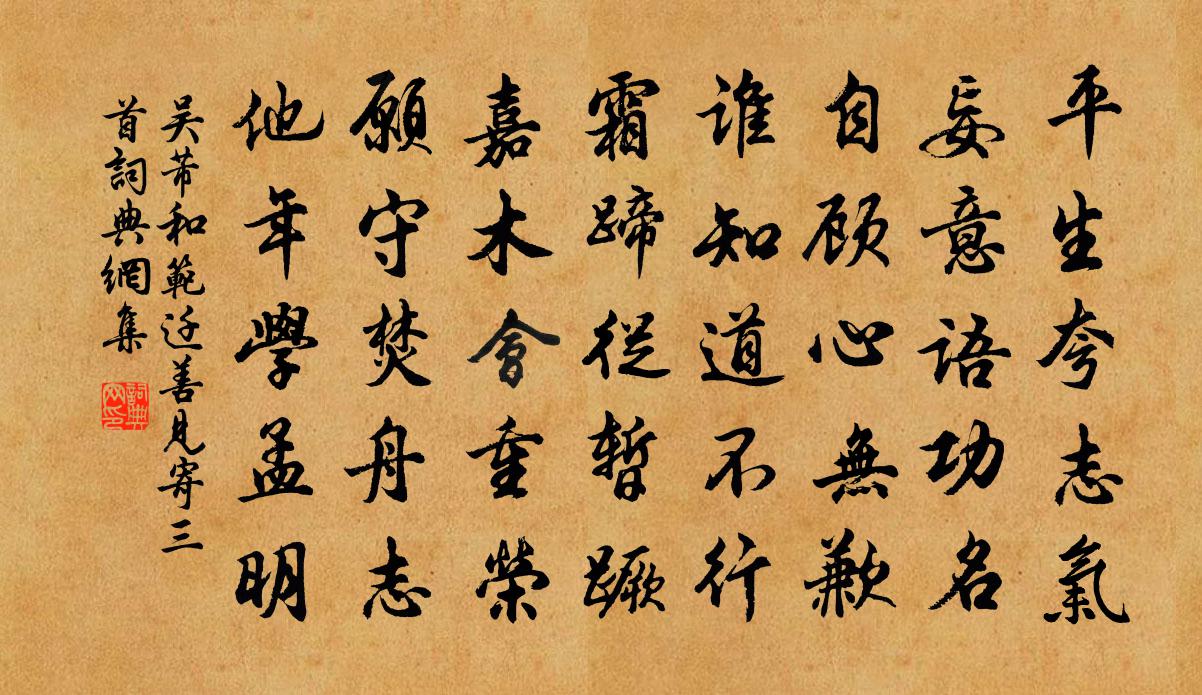 平生夸志氣
妄意語功名
自顧心無歉
誰知道不行
霜蹄從暫蹶
嘉木會重榮
願守焚舟志
他年學孟明
吴芾和範迂善見寄三
首詞典網集
詞典
网印